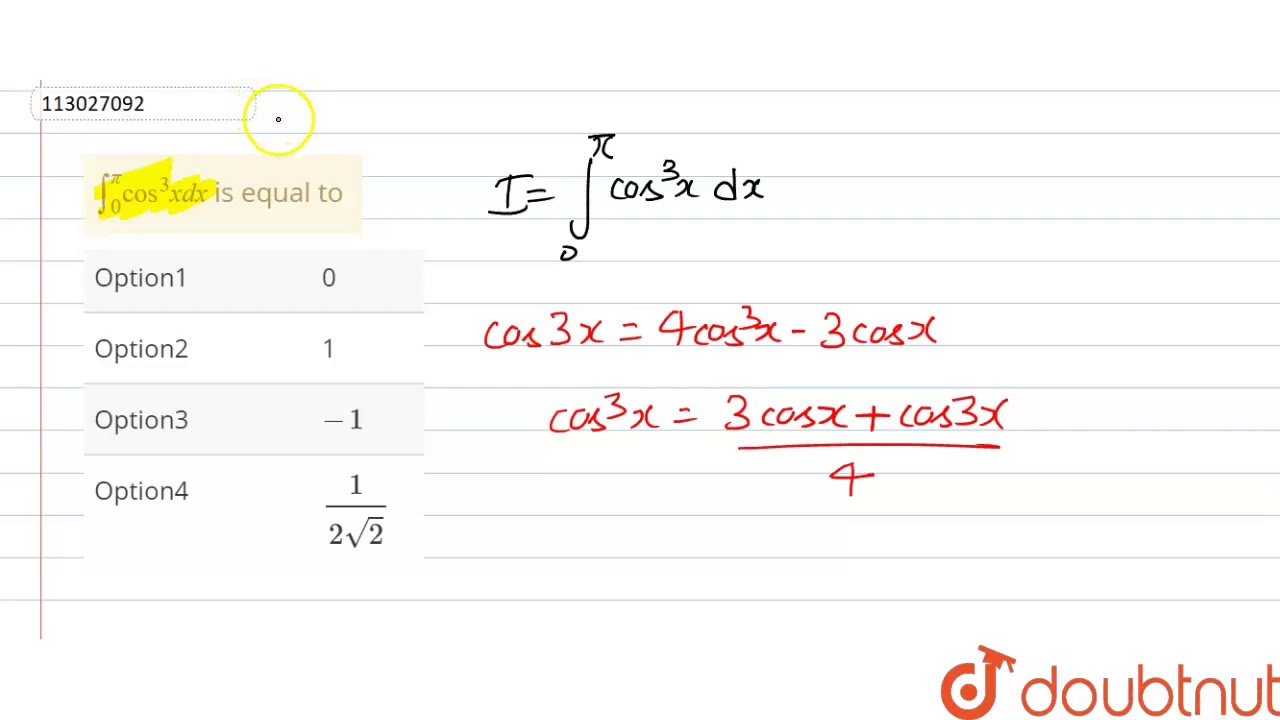 113027092
∫₀^π cos³xdx is equal to
Option1 0
Option2 1
Option3 −1
Option4 1/(2√2)
I = ∫₀^π cos³x dx
cos3x = 4cos³x - 3cosx
cos³x = (3cosx + cos3x)/4
doubtnut